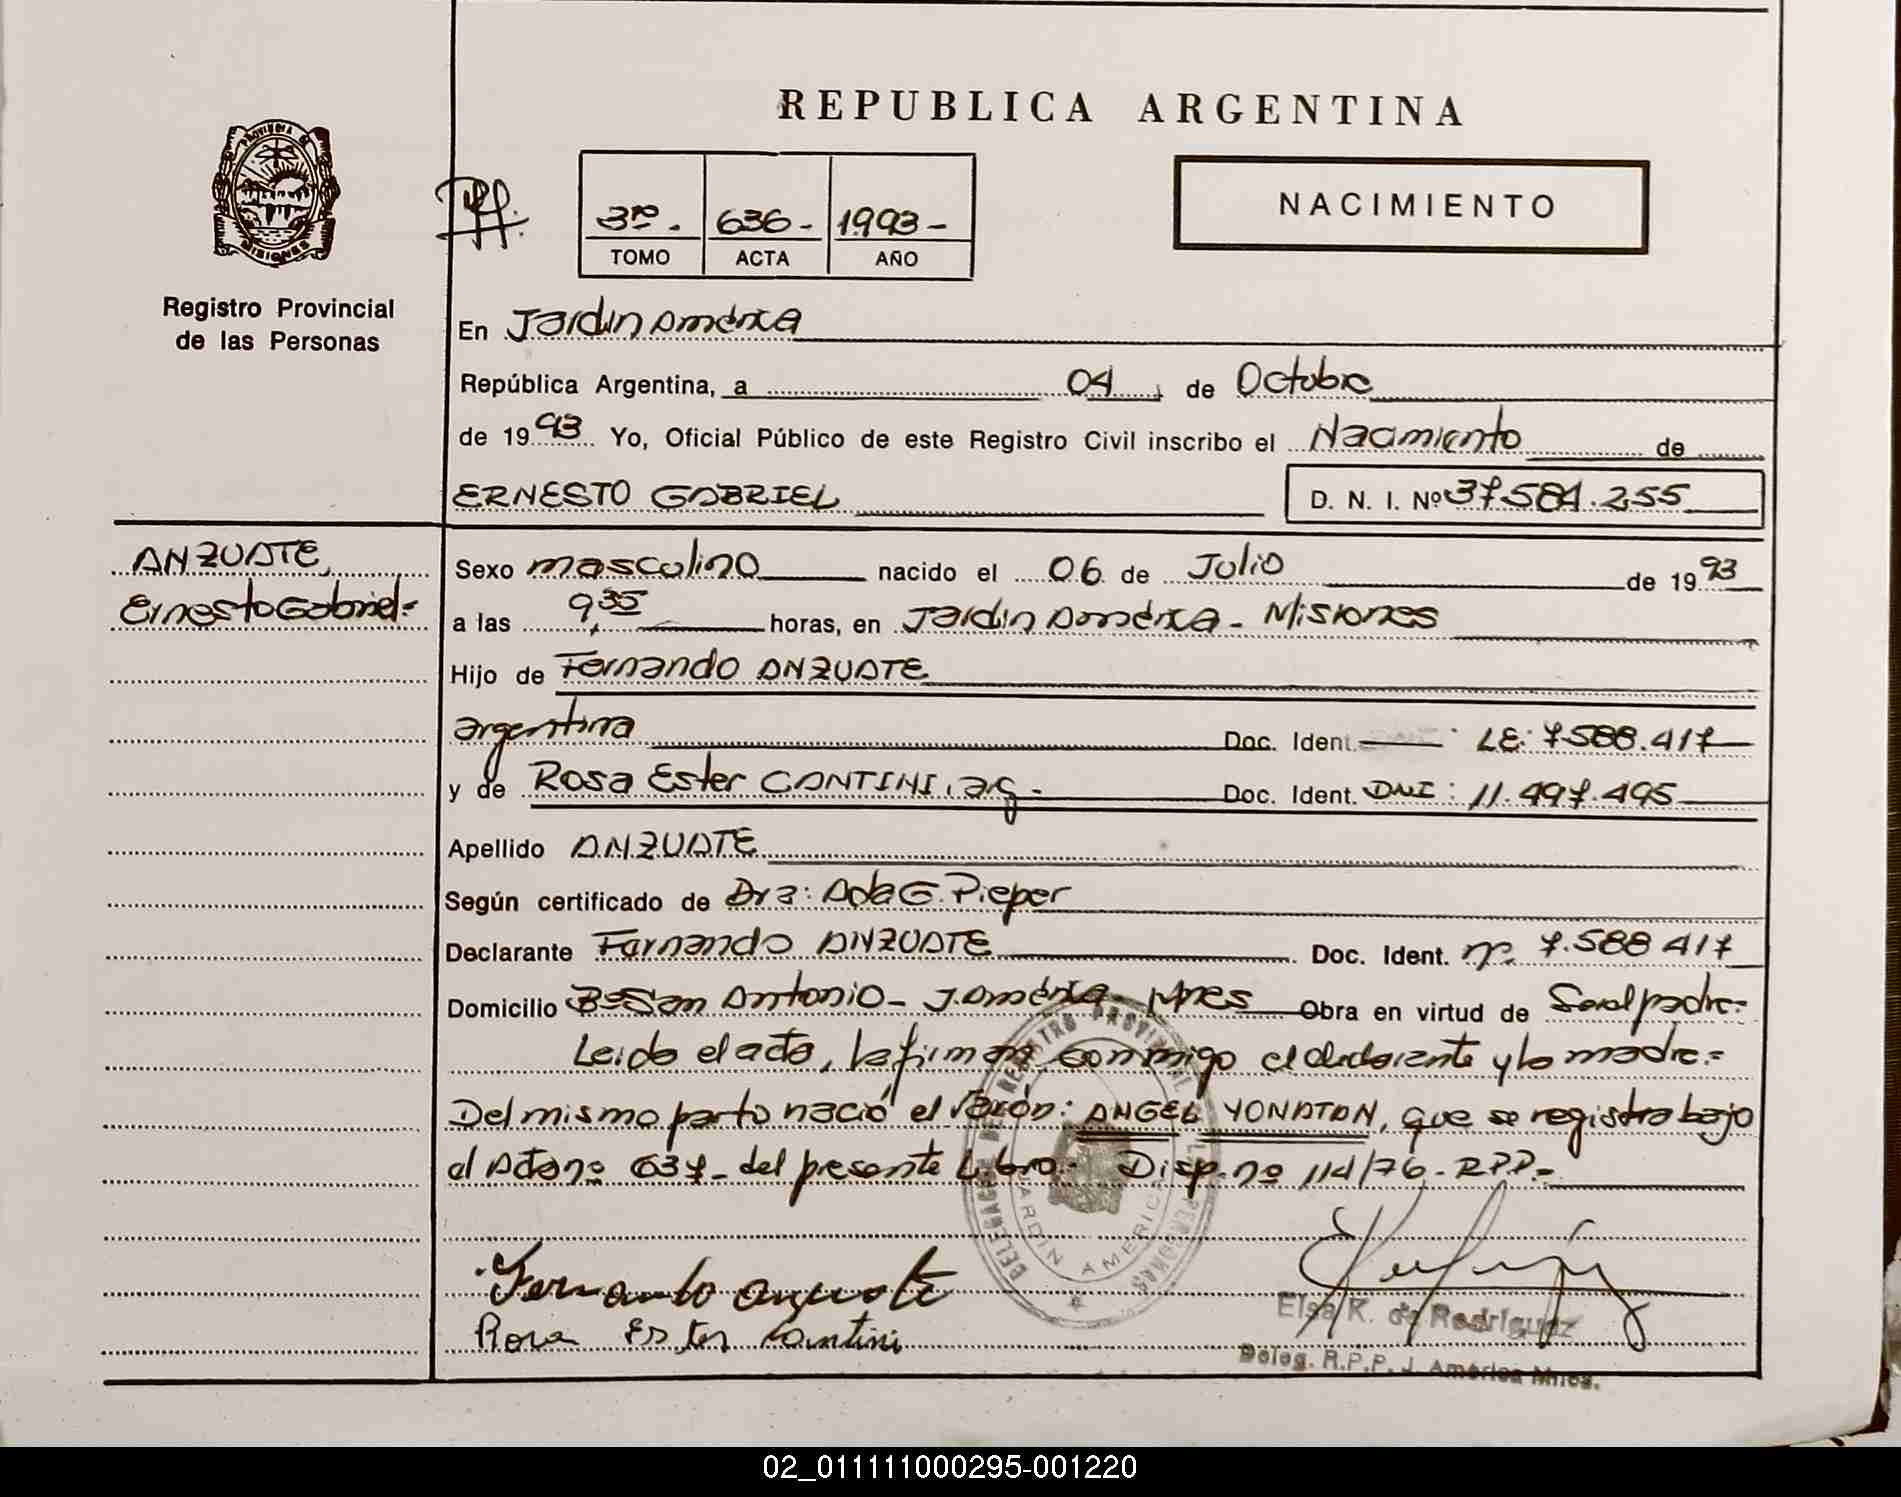 REPUBLICA ARGENTINA
PROVINCIA DE
MISIONES
Registro Provincial
de las Personas
3ro. 636- 1.993-
TOMO ACTA AÑO
NACIMIENTO
En Jardin América
República Argentina, a 04 de Octubre
de 1993 Yo, Oficial Público de este Registro Civil inscribo el Nacimiento de
ERNESTO GABRIEL D. N. I. Nº 37.584.255
ANZUATE,
Ernesto Gabriel=
Sexo masculino nacido el 06 de Julio de 1993
a las 9,35 horas, en Jardin América - Misiones
Hijo de Fernando ANZUATE
argentina Doc. Ident. LE: 7.588.417
y de Rosa Ester CANTINI, arg.- Doc. Ident. DNI: 11.497.495
Apellido ANZUATE
Según certificado de Dra: Ada G. Pieper
Declarante Fernando ANZUATE Doc. Ident. nº. 7.588 417
Domicilio Bº San Antonio - J. América - Mnes Obra en virtud de Ser el padre=
Leido el acta, la firman conmigo el declarante y la madre.=
Del mismo parto nació el Varón: ANGEL YONATAN, que se registra bajo
el Acta nº 637- del presente Libro.- Disp. nº 114/76 - RPP.=
DELEGACION DEL REGISTRO PROVINCIAL DE LAS PERSONAS
JARDIN AMERICA
Fernando anzuate
Rosa Ester Cantini
Elsa K. de Rodriguez
Deleg. R.P.P. J. América Mnes.
02_011111000295-001220